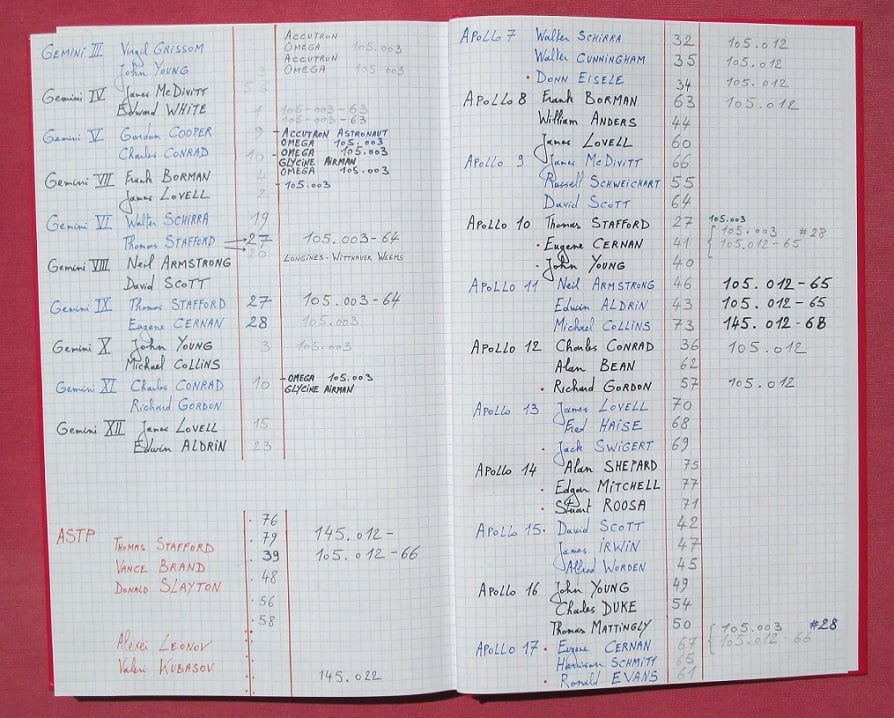 ACCUTRON
Gemini III Virgil GRISSOM OMEGA 105.003
ACCUTRON
John YOUNG 3 OMEGA 105.003
Gemini IV James McDIVITT
Edward WHITE 105-003-63
105.003-63
Gemini V Gordon COOPER 9 - ACCUTRON ASTRONAUT
OMEGA 105.003
Charles CONRAD 10 - OMEGA 105.003
GLYCINE AIRMAN
Gemini VII Frank BORMAN 4 OMEGA 105.003
James LOVELL 2 - 105.003
Gemini VI Walter SCHIRRA 19
Thomas STAFFORD 27 105.003-64
Gemini VIII Neil ARMSTRONG 20 LONGINES-WITTNAUER WEEMS
David SCOTT
Gemini IX Thomas STAFFORD 27 105.003-64
Eugene CERNAN 28 105.003
Gemini X John YOUNG 3 105.003
Michael COLLINS
Gemini XI Charles CONRAD 10 - OMEGA 105.003
GLYCINE AIRMAN
Richard GORDON
Gemini XII James LOVELL 15
Edwin ALDRIN 23
. 76
ASTP . 79 145.012-
THOMAS STAFFORD . 39 105.012-66
VANCE BRAND
DONALD SLAYTON . 48
. 56
. 58
Alexei LEONOV
Valeri KUBASOV 145.022
APOLLO 7 Walter SCHIRRA 32 105.012
Walter CUNNINGHAM 35 105.012
. DONN EISELE 34 105.012
APOLLO 8 Frank BORMAN 63 105.012
William ANDERS 44
James LOVELL 60
APOLLO 9 James McDIVITT 66
Russell SCHWEICHART 55
David SCOTT 64
APOLLO 10 Thomas STAFFORD 27 105.003
. Eugene CERNAN 41 { 105.003 #28
105.012-65
. John YOUNG 40
APOLLO 11 Neil ARMSTRONG 46 105.012-65
Edwin ALDRIN 43 105.012-65
Michael COLLINS 73 145.012-68
APOLLO 12 Charles CONRAD 36 105.012
Alan BEAN 62
. Richard GORDON 57 105.012
APOLLO 13 James LOVELL 70
Fred HAISE 68
. Jack SWIGERT 69
APOLLO 14 Alan SHEPARD 75
. Edgar MITCHELL 77
. Stuart ROOSA 71
APOLLO 15. David SCOTT 42
James IRWIN 47
Alfred WORDEN 45
APOLLO 16 John YOUNG 49
Charles DUKE 54
Thomas MATTINGLY 50
APOLLO 17 . Eugene CERNAN 67 { 105.003 #28
105.012-66
Harrison SCHMITT 65
. Ronald EVANS 61